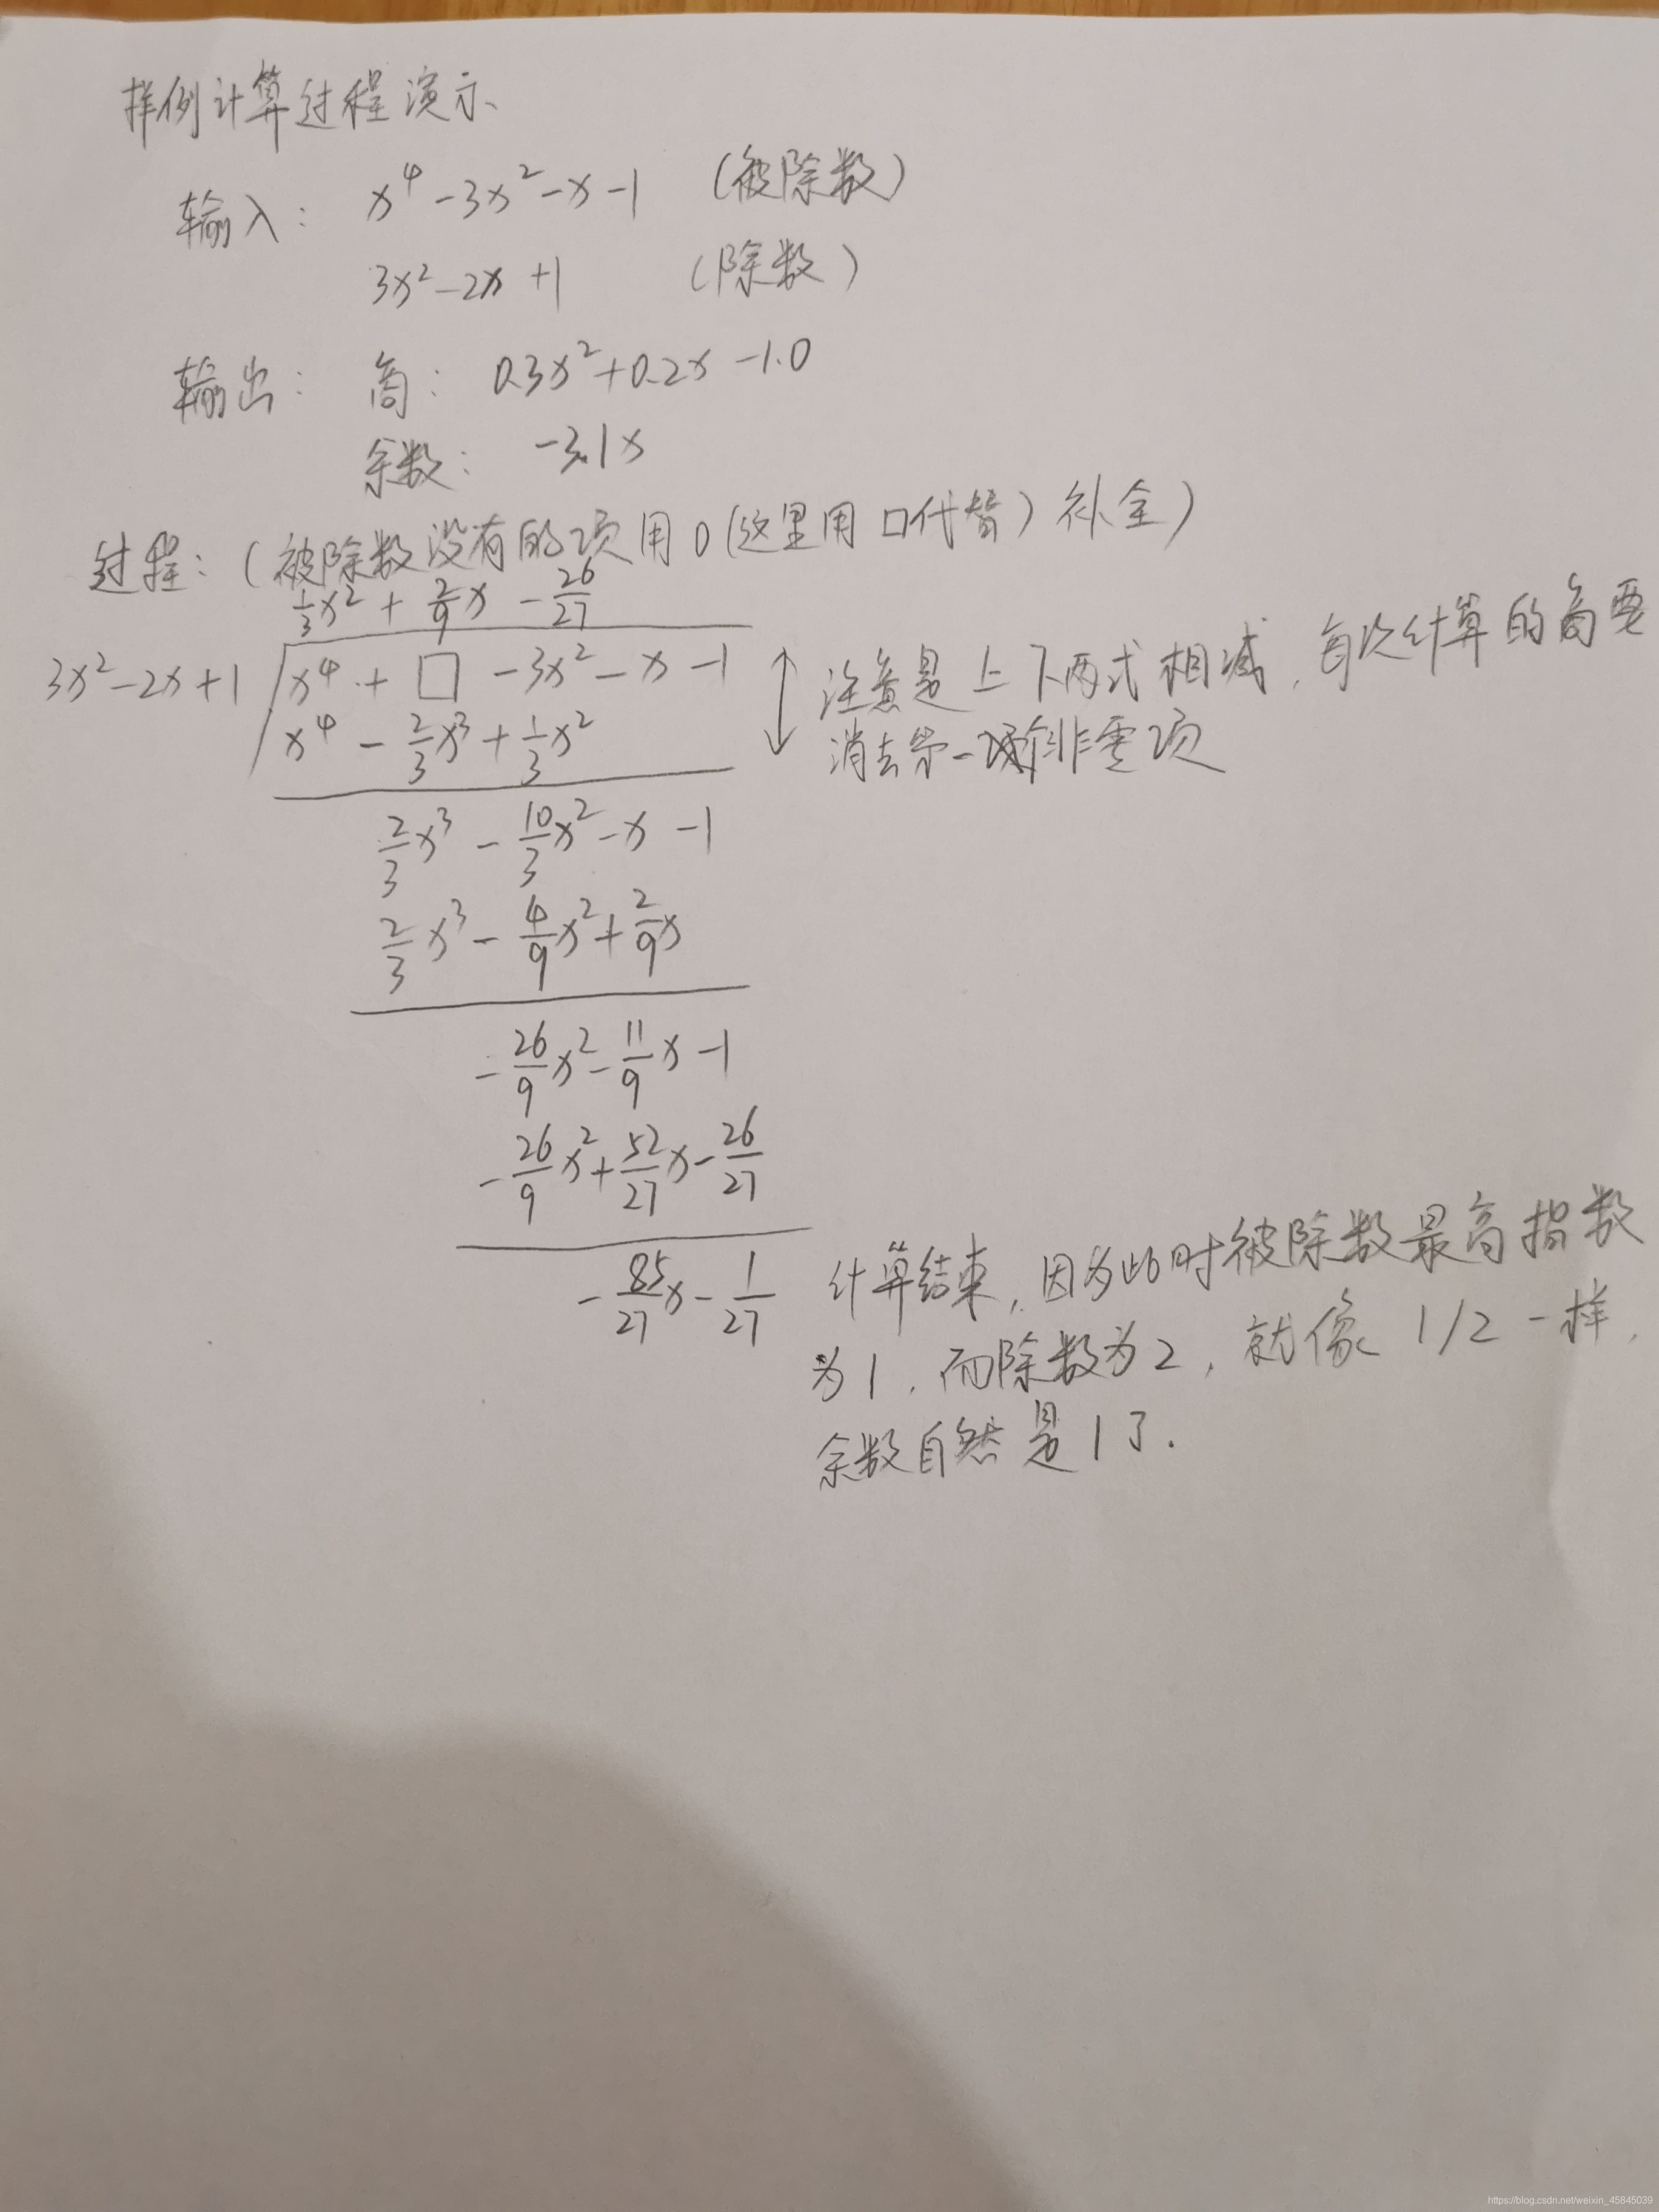 样例计算过程演示
输入： x⁴ -3x² -x -1 （被除数）
3x² -2x +1 （除数）
输出： 商： 0.3x² +0.2x -1.0
余数： -3.1x
过程：（被除数没有的项用0（这里用□代替）补全）
1/3x² + 2/9x - 26/27
3x² -2x +1 x⁴ + □ -3x² -x -1
注意是上下两式相减，每次计算的商要
x⁴ - 2/3x³ + 1/3x²
消去第一个非零项
2/3x³ - 10/3x² -x -1
2/3x³ - 4/9x² + 2/9x
-26/9x² - 11/9x -1
-26/9x² + 52/27x - 26/27
-85/27x - 1/27 计算结束，因为此时被除数最高指数
为1，而除数为2，就像1/2一样，
余数自然是1了.
https://blog.csdn.net/weixin_45845039